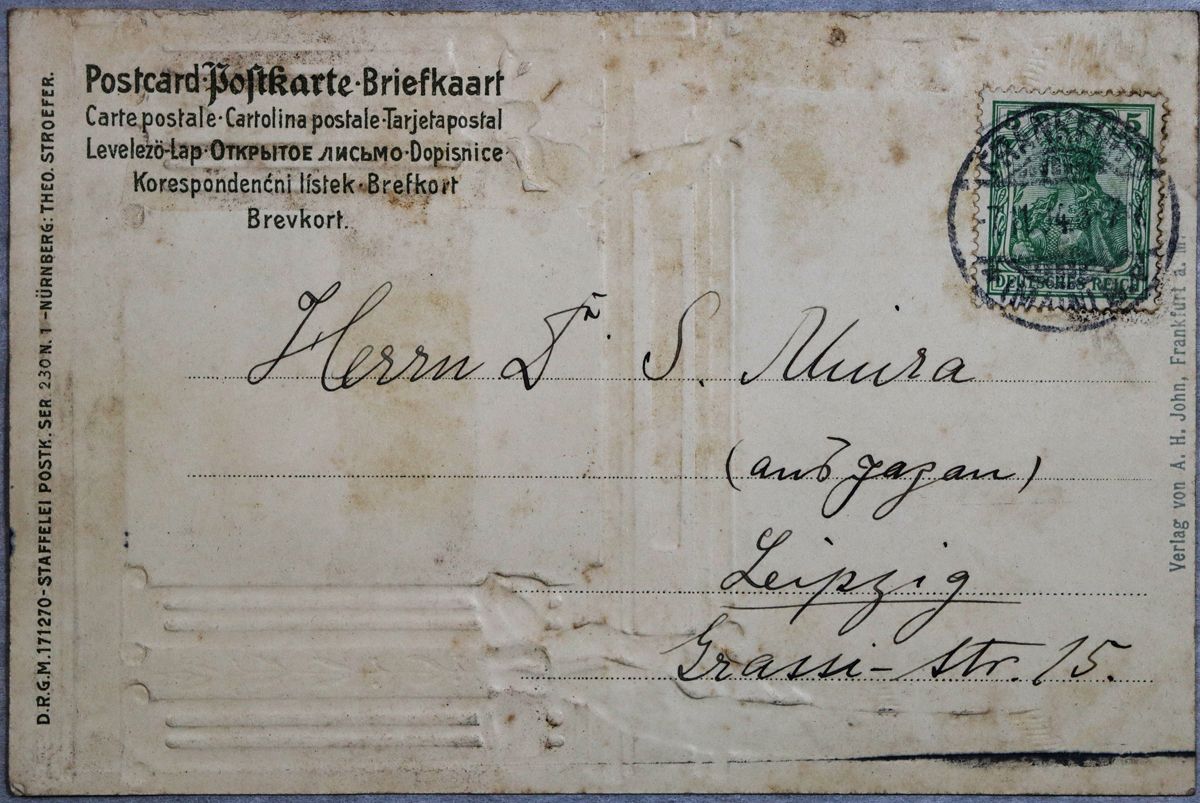 Postcard·Postkarte·Briefkaart
Carte postale·Cartolina postale·Tarjetapostal
Levelezö-Lap·Открытое письмо·Dopisnice·
Korespondenčni lístek·Brefkort
Brevkort.
D.R.G.M. 171270-STAFFELEI POSTK. SER 230 N. 1 -NÜRNBERG: THEO. STROEFER.
5
DEUTSCHES REICH
Herrn Dr. S. Miura
(aus Japan)
Leipzig
Grassi-str. 15.
Verlag von A. H. John, Frankfurt a. m.